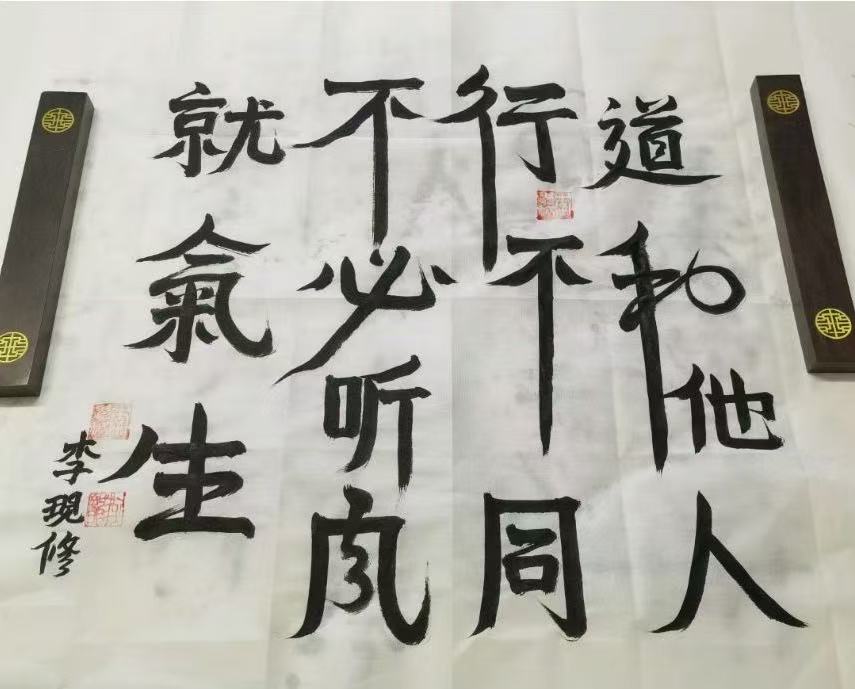 道和他人
行不同
不必听风
就氣生
李現修